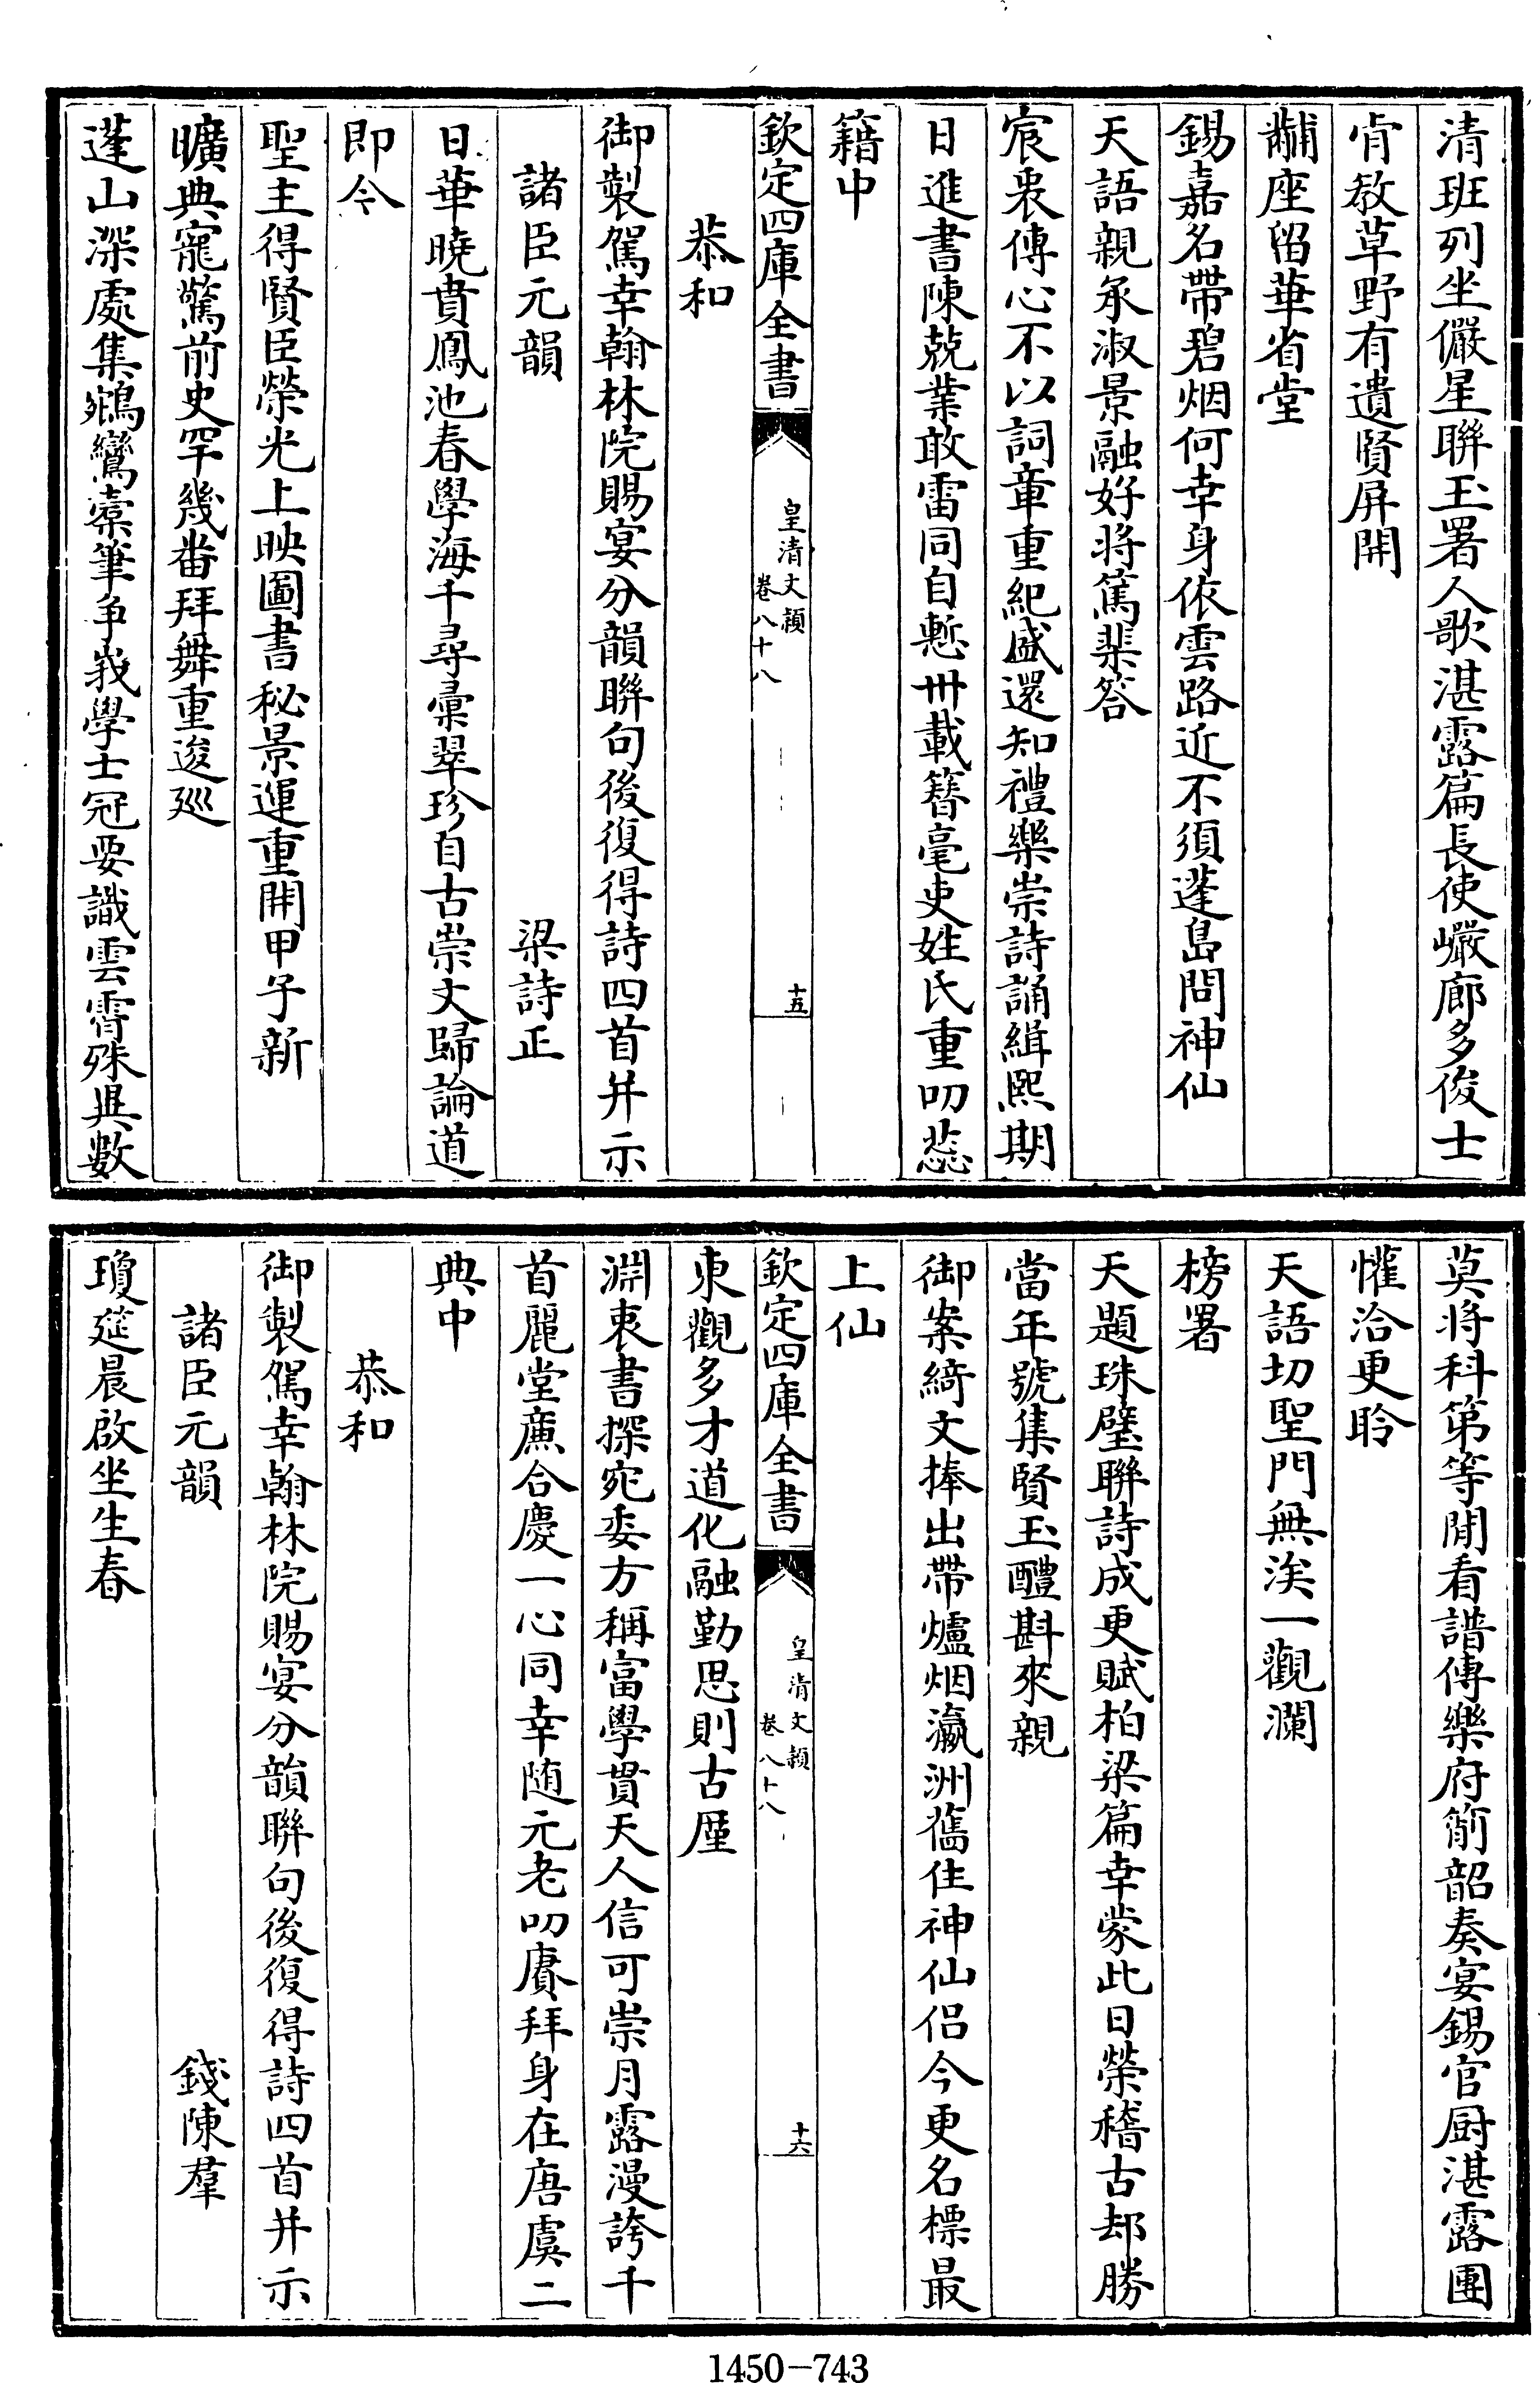 清班列坐儼星聯玉署人歌湛露篇長使巖廊多俊士
肯教草野有遺賢屏開
黼座留華省堂
錫嘉名帶碧烟何幸身依雲路近不須蓬島問神仙
天語親承淑景融好將篤棐答
宸衷傳心不以詞章重紀盛還知禮樂崇詩誦緝熙期
日進書陳兢業敢雷同自慙卅載簪毫吏姓氏重叨蕊
籍中
欽定四庫全書
皇清文穎
卷八十八
十五
恭和
御製駕幸翰林院賜宴分韻聯句後復得詩四首并示
諸臣元韻
梁詩正
日華曉賁鳳池春學海千尋彙翠珍自古崇文歸論道
即今
聖主得賢臣榮光上映圖書秘景運重開甲子新
曠典寵驚前史罕幾番拜舞重逡廵
蓬山深處集鵷鸞槖筆爭峩學士冠要識雲霄殊異數
莫將科第等閒看譜傳樂府箾韶奏宴錫官厨湛露團
懽洽更聆
天語切聖門無涘一觀瀾
榜署
天題珠璧聯詩成更賦柏梁篇幸蒙此日榮稽古却勝
當年號集賢玉醴斟來親
御案綺文捧出帶爐烟瀛洲舊住神仙侣今更名標最
上仙
欽定四庫全書
皇清文穎
卷八十八
十六
東觀多才道化融勤思則古厪
淵衷書探宛委方稱富學貫天人信可崇月露漫誇千
首麗堂廉合慶一心同幸随元老叨賡拜身在唐虞二
典中
恭和
御製駕幸翰林院賜宴分韻聯句後復得詩四首并示
諸臣元韻
錢陳羣
瓊筵晨啟坐生春
1450-743